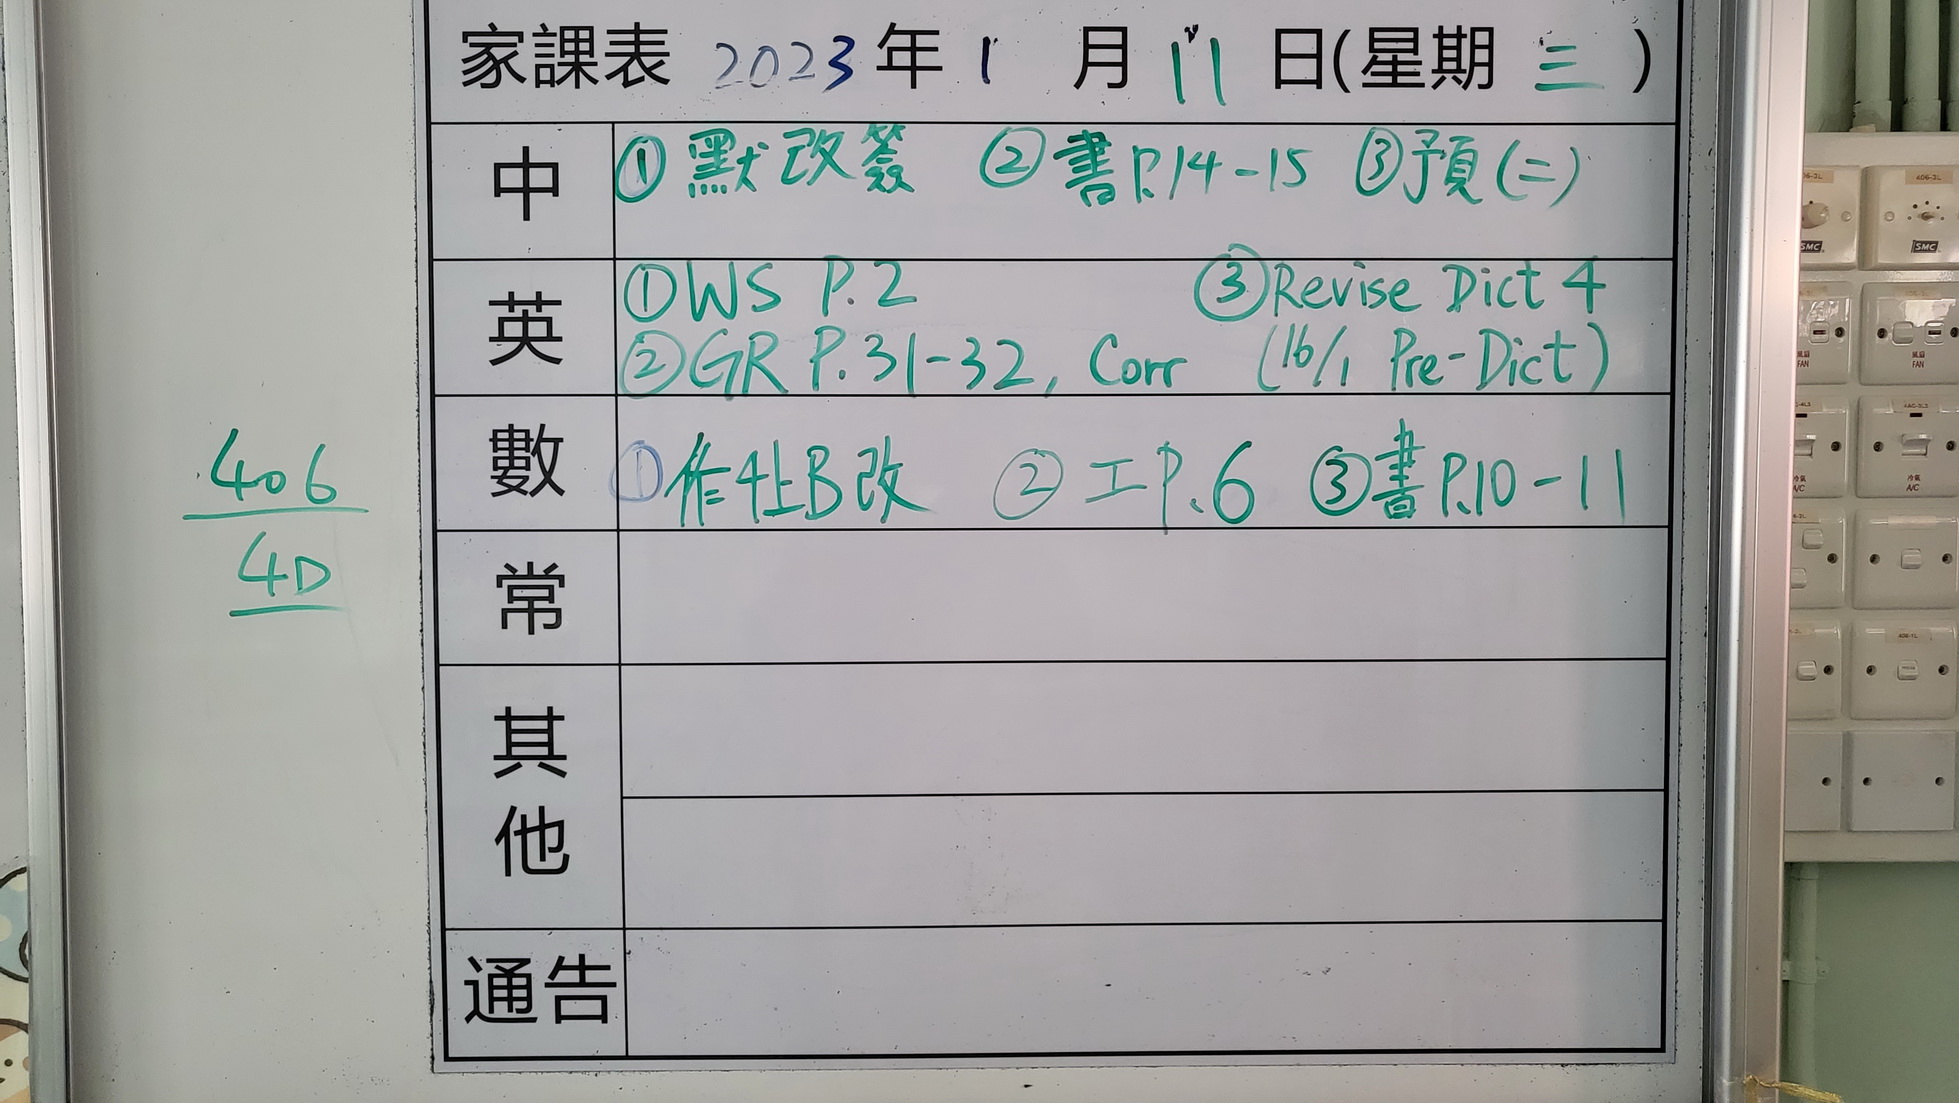 家課表 2023 年 1 月 11 日(星期 三 )
中 ①默改簽 ②書P.14-15 ③預(二)
英 ①WS P.2 ③Revise Dict 4
②GR P.31-32, Corr (16/1 Pre-Dict)
數 ①作4上B改 ②工P.6 ③書P.10-11
406
4D
常
其他
通告
SMC
SMC
FAN
FAN
冷氣
A/C
冷氣
A/C